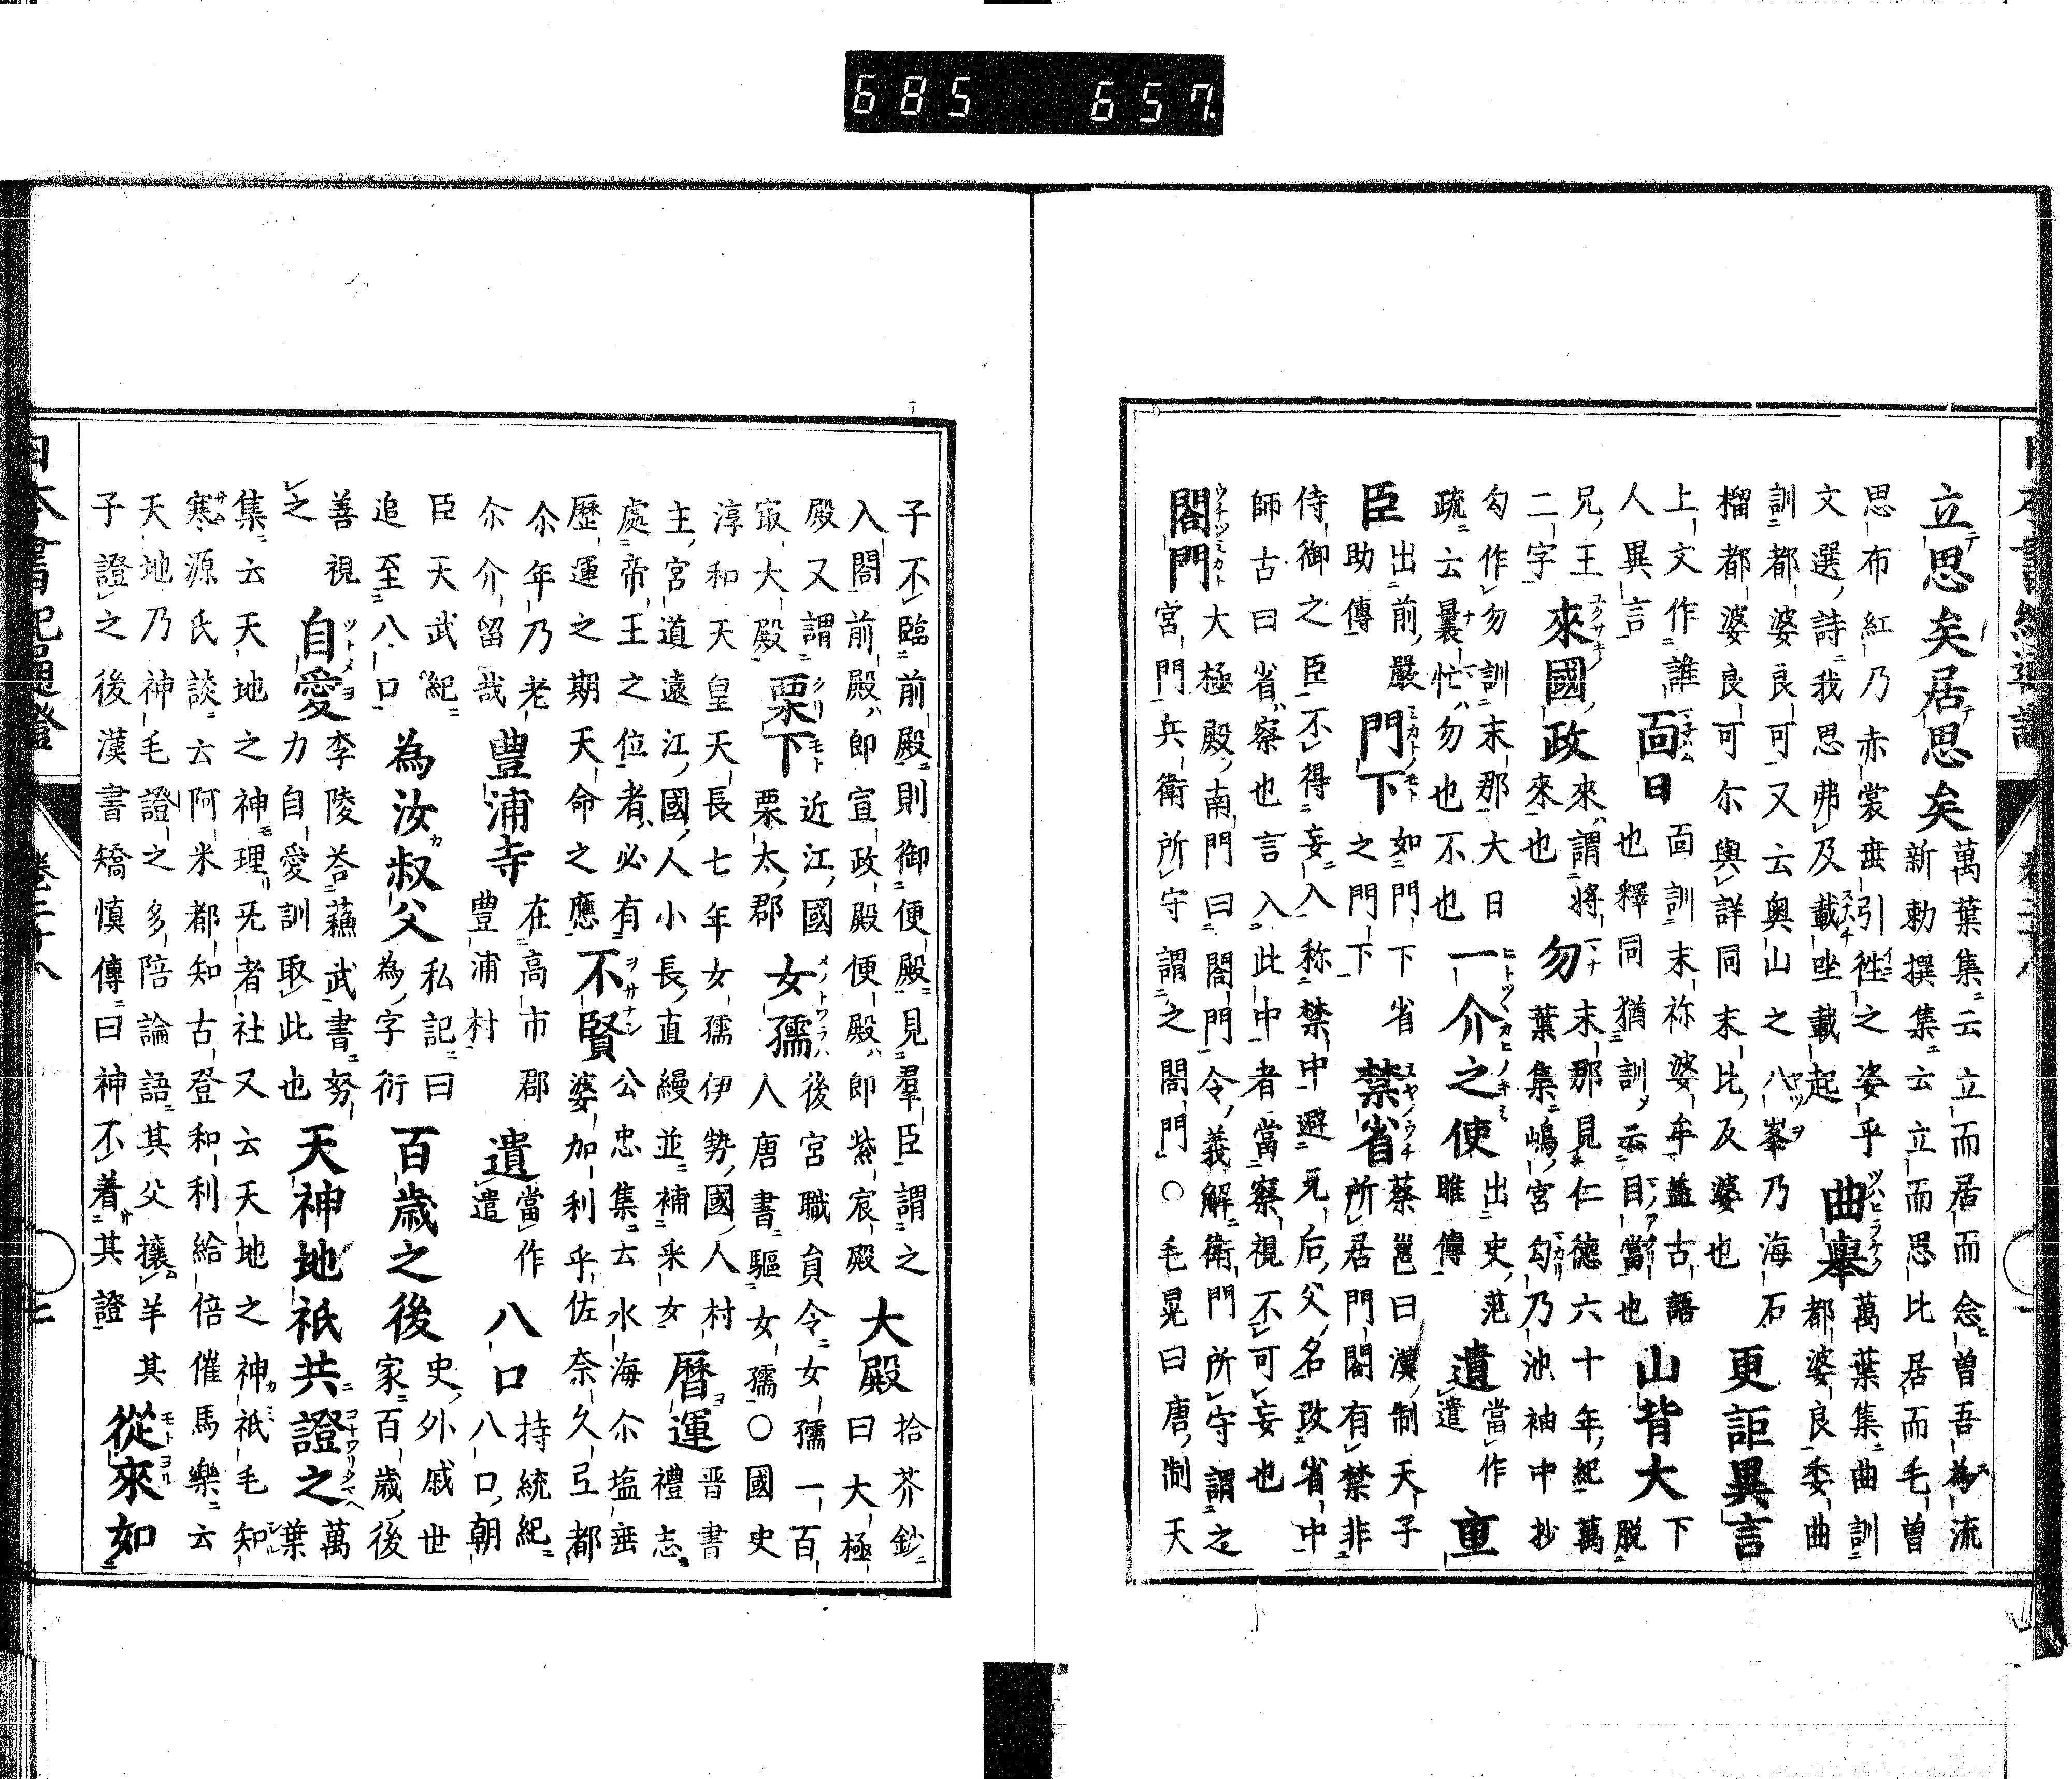 立思矣居思矣
萬葉集云立而居而念曽吾為流
新勅撰集云立而思比居而毛曽
思布紅乃赤裳垂引徃之姿乎
文選詩我思弗及載坐載起
曲擧
萬葉集曲訓
都婆良委曲
訓都婆良可又云奥山之八峯乃海石
榴都婆良可尓與詳同末比反婆也
更詎異言
上文作誰
人異言
面曰
面訓末祢婆牟盖古語
也釋同猶訓云目當也
山背大
下
脱
兄王
二字
來國政
來謂將
來也
勿
末那見仁德六十年紀萬
葉集嶋宮勾乃池袖中抄
勾作勿訓末那大日
疏云曩忙勿也不也
一介之使
出史范
雎傳
遺
當作
遣
重
臣
出前嚴
助傳
門下
如門下省
之門下
禁省
蔡邕曰漢制天子
所居門閤有禁非
侍御之臣不得妄入称禁中避元后父名改省中
師古曰省察也言入此中者當察視不可妄也
閤門
大極殿南門曰閤門令義解衛門所守謂之
宮門兵衛所守謂之閤門○毛晃曰唐制天
子不臨前殿則御便殿見羣臣謂之
入閤前殿即宣政殿便殿即紫宸殿
大殿
拾芥鈔
曰大極
殿又謂
㝡大殿
栗下
近江國
栗太郡
女孺
後宮職員令女孺一百
人唐書驅女孺○國史
淳和天皇天長七年女孺伊勢國人村
主宮道遠江國人小長直縵並補采女
曆運
晋書
禮志
處帝王之位者必有
歷運之期天命之應
不賢
公忠集云水海尓塩垂
婆加利乎佐奈久弖都
尒年乃老
尒介留哉
豊浦寺
在高市郡
豊浦村
遺
當作
遣
八口
持統紀
八口朝
臣天武紀
追至八口
為汝叔父
私記曰
為字衍
百歳之後
史外戚世
家百歳後
善視
之
自愛
李陵荅蘓武書努
力自愛訓取此也
天神地祇共證之
萬
葉
集云天地之神理旡者社又云天地之神祇毛知
寒源氏談云阿米都知古登和利給倍催馬樂云
天地乃神毛證之多陪論語其父攘羊其
子證之後漢書矯慎傳曰神不着其證
從來如
685 657